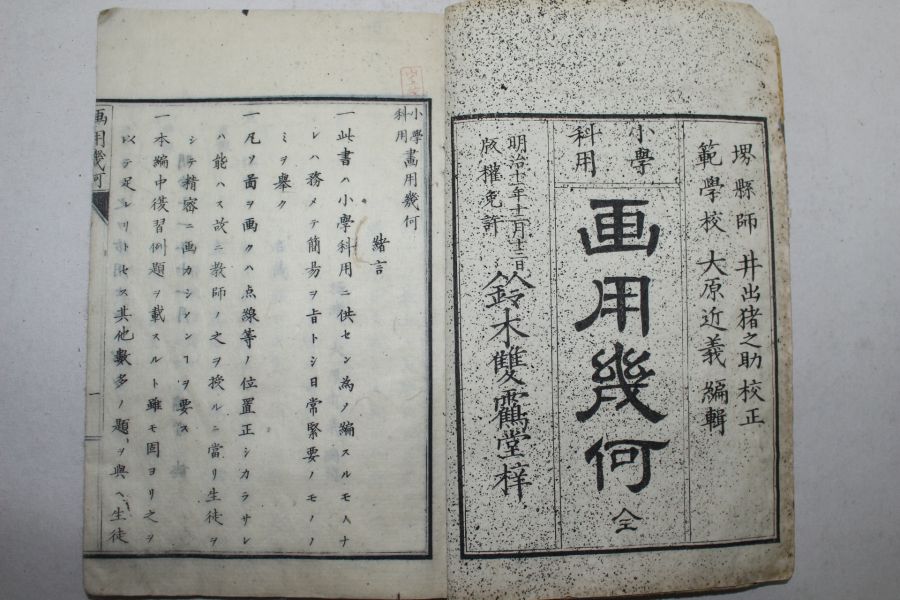 堺縣師範學校
井出猪之助校正
大原近義編輯
小學科用
画用幾何 全
明治十年十二月十二日
版權免許
鈴木雙鶴堂梓
小學科用畫用幾何
緒言
一此書ハ小學科用ニ供セン為ノ編スルモノナ
レハ務メテ簡易ヲ旨トシ日常緊要ノモノノ
ミヲ擧ク
一凡ソ啚ヲ画クハ点線等ノ位置正シカラサレ
ハ能ハス故ニ教師ノ之ヲ授ルニ當リ生徒ヲ
シテ精密ニ画カシメンヿヲ要ス
一本編中復習例題ヲ載スルト雖モ固ヨリ之ヲ
以テ足レリトセス其他數多ノ題ヲ與ヘ生徒
画用幾何
一